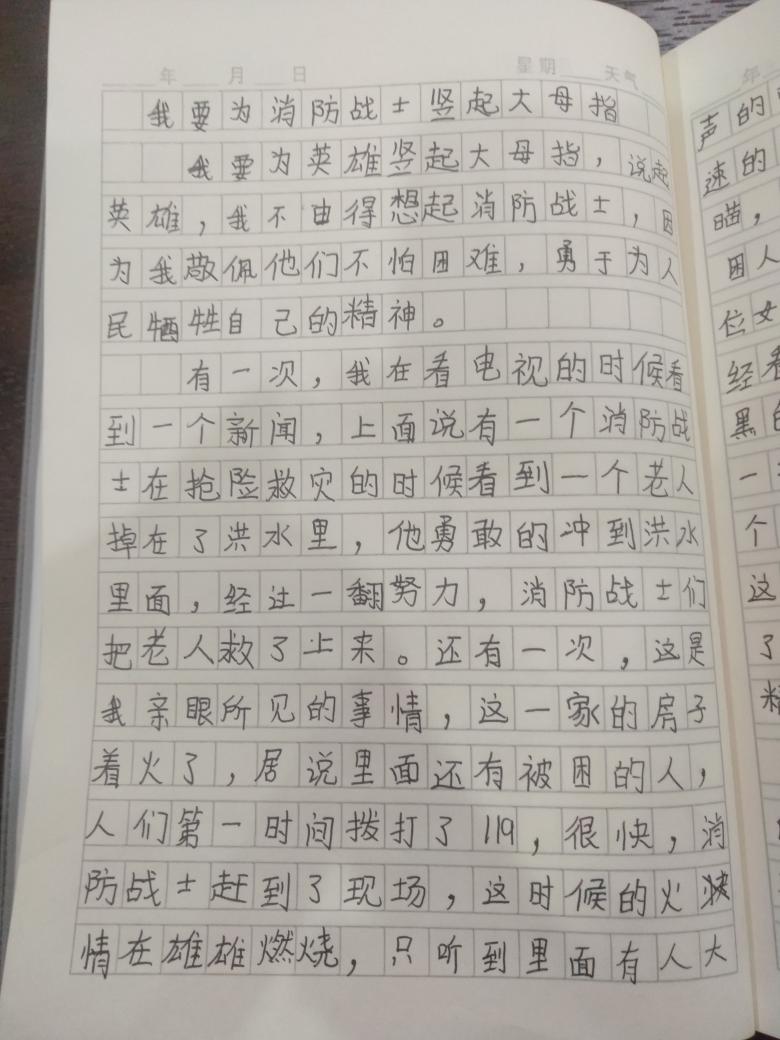 年 月 日 星期 天气
我要为消防战士竖起大母指
我要为英雄竖起大母指，说起
英雄，我不由得想起消防战士，因
为我敬佩他们不怕困难，勇于为人
民牺牲自己的精神。
有一次，我在看电视的时候看
到一个新闻，上面说有一个消防战
士在抢险救灾的时候看到一个老人
掉在了洪水里，他勇敢的冲到洪水
里面，经过一翻努力，消防战士们
把老人救了上来。还有一次，这是
我亲眼所见的事情，这一家的房子
着火了，居说里面还有被困的人，
人们第一时间拨打了119，很快，消
防战士赶到了现场，这时候的火
情在雄雄燃烧，只听到里面有人大
年
声的
速的
瞄，
困人
位女
经看
黑的
一
个
这
了
精